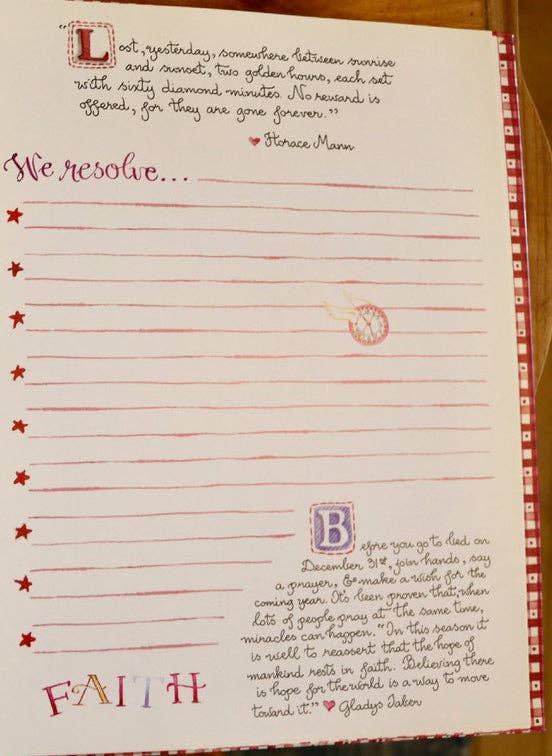 "Lost, yesterday, somewhere between sunrise
and sunset, two golden hours, each set
with sixty diamond minutes. No reward is
offered, for they are gone forever."
♥ Horace Mann
We resolve...
Before you go to bed on
December 31st, join hands, say
a prayer, & make a wish for the
coming year. It's been proven that, when
lots of people pray at the same time,
miracles can happen. "In this season it
is well to reassert that the hope of
mankind rests in faith. Believing there
is hope for the world is a way to move
toward it." ♥ Gladys Taber
FAITH